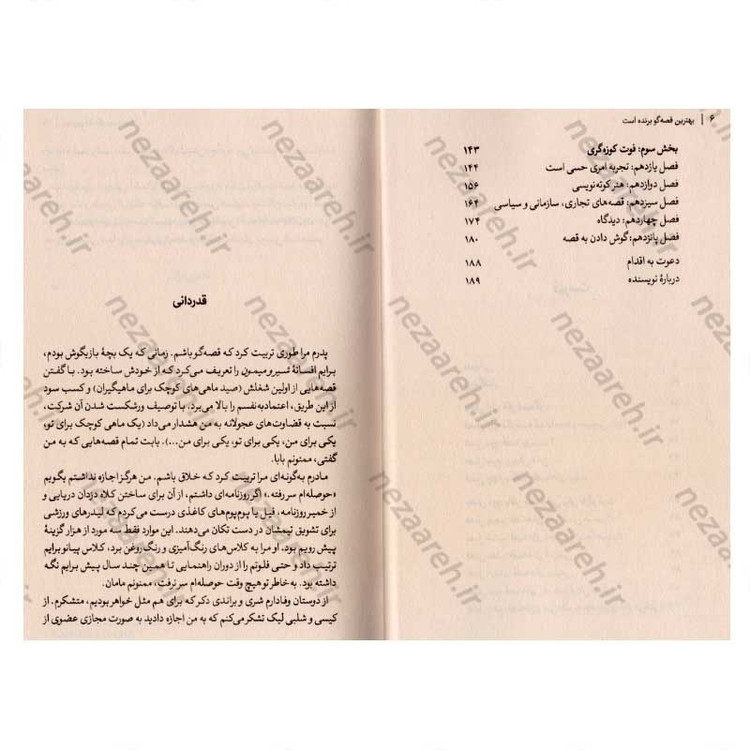 ۶ | بهترین قصه‌گو برنده است
بخش سوم: فوت کوزه‌گری ۱۴۳
فصل یازدهم: تجربه امری حسی است ۱۴۴
فصل دوازدهم: هنر کوته‌نویسی ۱۵۶
فصل سیزدهم: قصه‌های تجاری، سازمانی و سیاسی ۱۶۴
فصل چهاردهم: دیدگاه ۱۷۴
فصل پانزدهم: گوش دادن به قصه ۱۸۰
دعوت به اقدام ۱۸۸
دربارهٔ نویسنده ۱۸۹
قدردانی
پدرم مرا طوری تربیت کرد که قصه‌گو باشم. زمانی که یک بچهٔ بازیگوش بودم،
برایم افسانهٔ شیر و میمون را تعریف می‌کرد که از خودش ساخته بود. با گفتن
قصه‌هایی از اولین شغلش (صید ماهی‌های کوچک برای ماهیگیران) و کسب سود
از این طریق، اعتمادبه‌نفسم را بالا می‌برد، با توصیف ورشکست شدن آن شرکت،
نسبت به قضاوت‌های عجولانه به من هشدار می‌داد (یک ماهی کوچک برای تو،
یکی برای من، یکی برای تو، یکی برای من...). بابت تمام قصه‌هایی که به من
گفتی، ممنونم بابا.
مادرم به‌گونه‌ای مرا تربیت کرد که خلاق باشم. من هرگز اجازه نداشتم بگویم
«حوصله‌ام سر رفته.» اگر روزنامه‌ای داشتم، از آن برای ساختن کلاه دزدان دریایی و
از خمیر روزنامه، فیل یا پوم‌پوم‌های کاغذی درست می‌کردم که لیدرهای ورزشی
برای تشویق تیمشان در دست تکان می‌دهند. این موارد فقط سه مورد از هزار گزینهٔ
پیش رویم بود. او مرا به کلاس‌های رنگ‌آمیزی و رنگ روغن برد، کلاس پیانو برایم
ترتیب داد و حتی فلوتم را از دوران راهنمایی تا همین چند سال پیش برایم نگه
داشته بود. به خاطر تو هیچ وقت حوصله‌ام سر نرفت، ممنونم مامان.
از دوستان وفادارم شری و براندی ذکر که برای هم مثل خواهر بودیم، متشکرم. از
کیسی و شلبی لیک تشکر می‌کنم که به من اجازه دادید به صورت مجازی عضوی از
nezaareh.ir